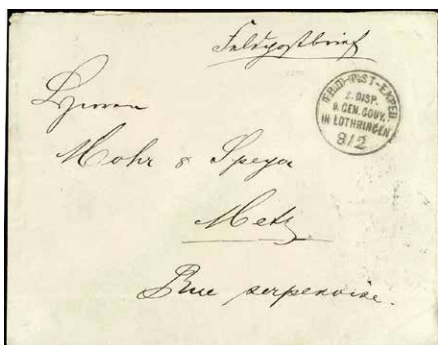 Feldpostbrief
FELD-POST-EXPED.
2. DISP.
D. GEN. GOUV.
IN LOTHRINGEN
8/2
Herren
Mohr & Speyer
Metz
Rue serpenoise.